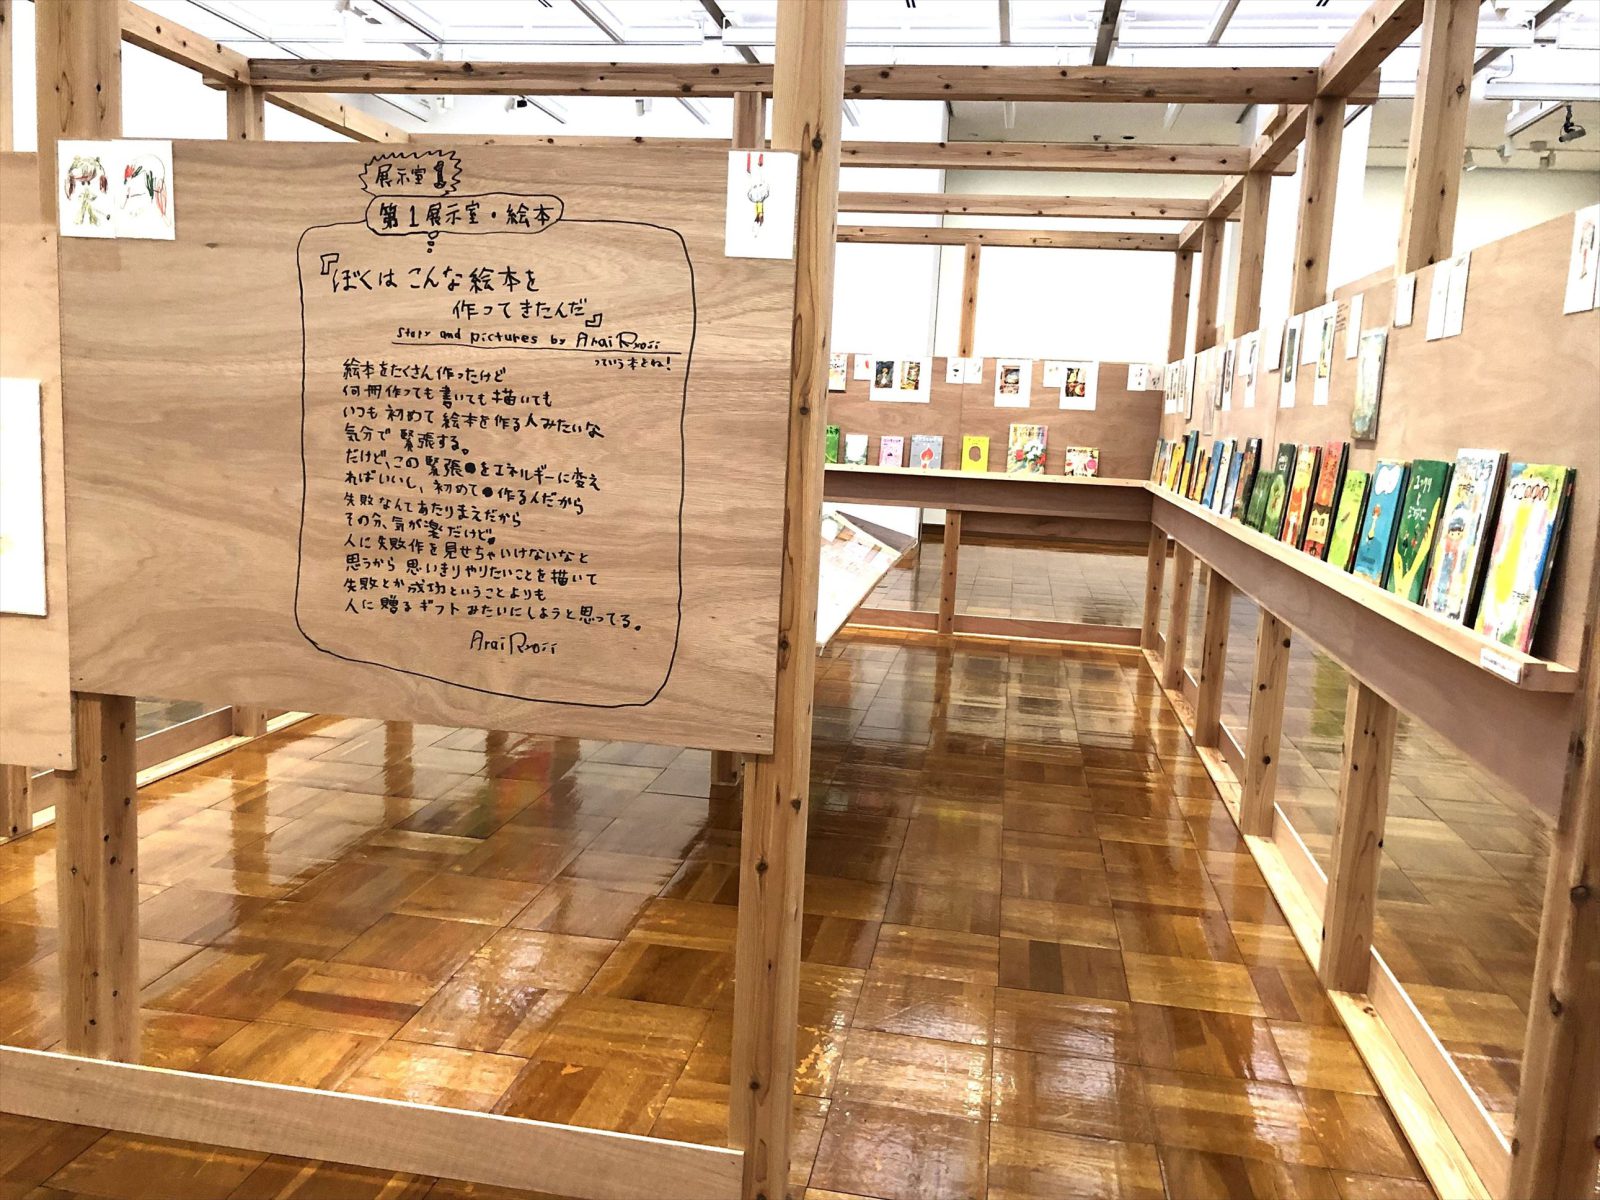 展示室1
第1展示室・絵本
『ぼくは こんな絵本を
作ってきたんだ』
Story and pictures by Arai Ryoji
っていう本とね!
絵本をたくさん作ったけど
何冊作っても書いても描いても
いつも初めて絵本を作る人みたいな
気分で緊張する。
だけど、この緊張をエネルギーに変え
ればいいし、初めて作るんだから
失敗なんてあたりまえだから
その分、気が楽だけど、
人に失敗作を見せちゃいけないなと
思うから思いきりやりたいことを描いて
失敗とか成功ということよりも
人に贈るギフトみたいにしようと思ってる。
Arai Ryoji